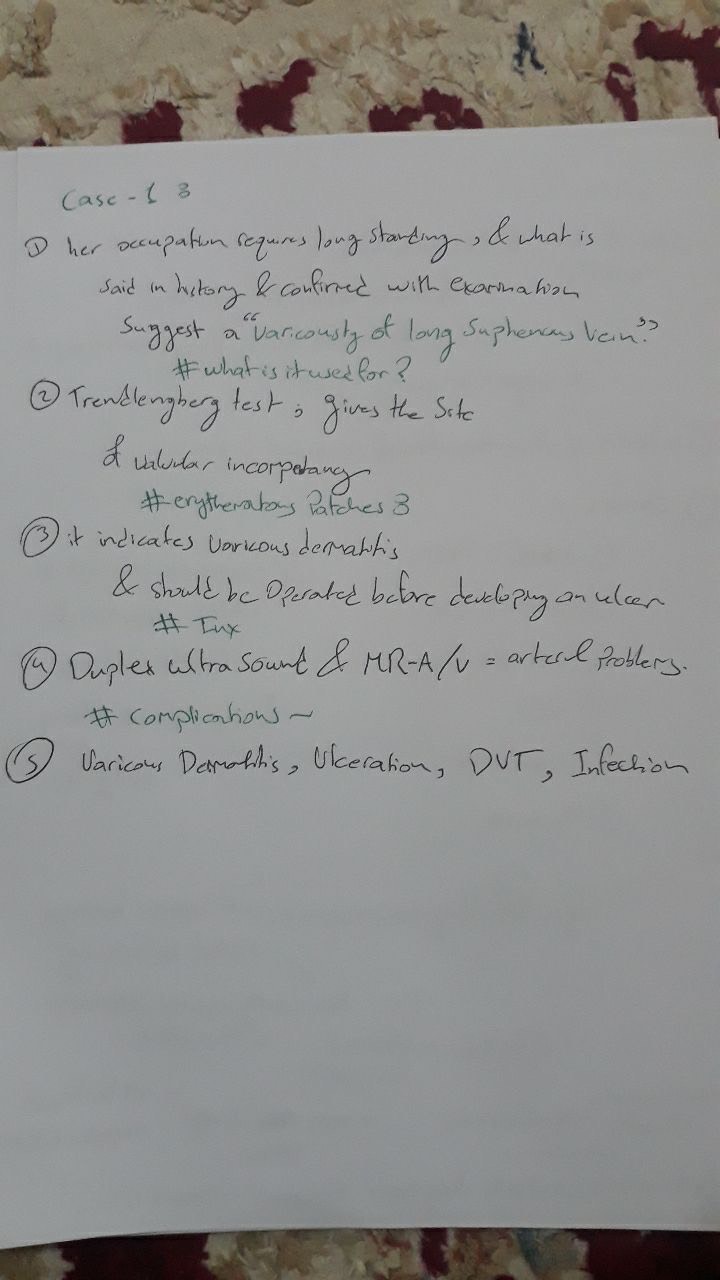 Case - 1 :
① her occupation requires long standing, & what is
said in history & confirmed with examination
Suggest a "Varicousty of long Suphenous Vein."
# what is it used for?
② Trendlengberg test ; gives the Site
of valvular incorpetancy
# erythematous Patches :
③ it indicates Varicous dermatitis
& should be Operated before developing an ulcer
# Inx
④ Duplex ultra Sound & MR-A/V = arterial Problems.
# Complications ~
⑤ Varicous Dermatitis, Ulceration, DVT, Infection